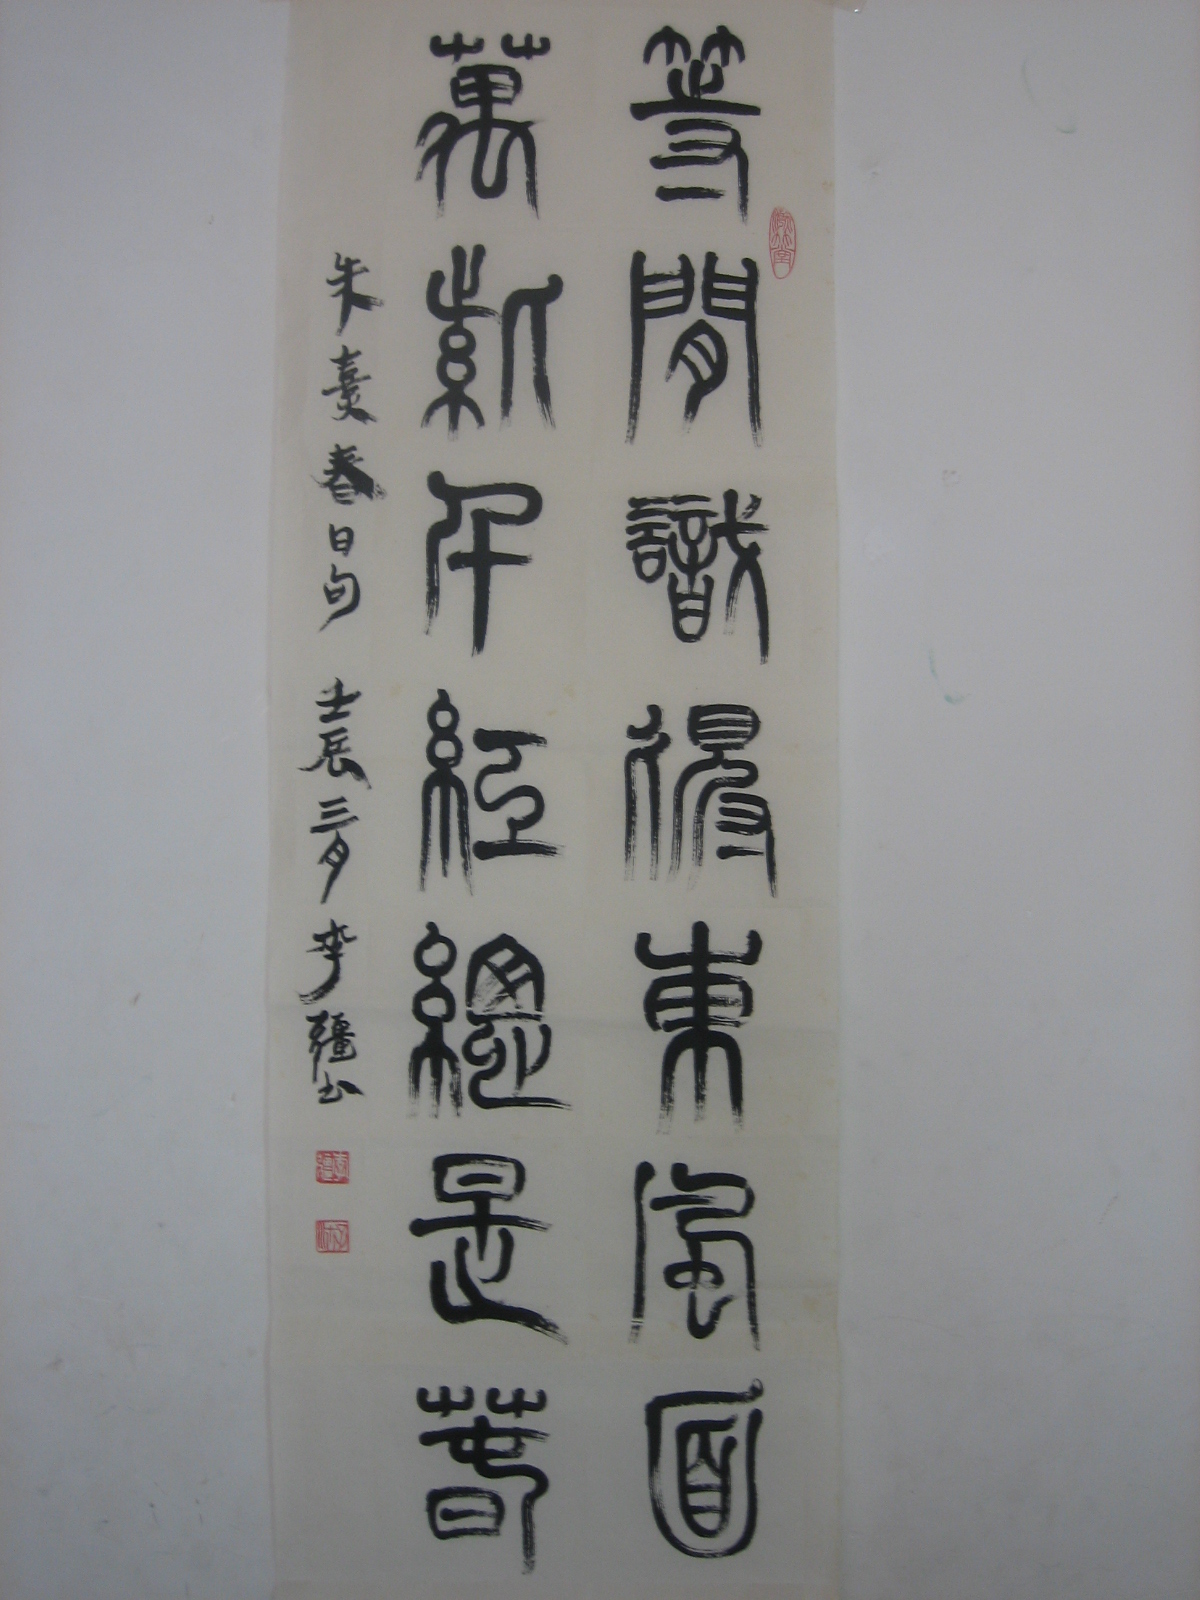 等閒識得東風面
萬紫千紅總是春
朱熹春日句 壬辰三月 李疆书